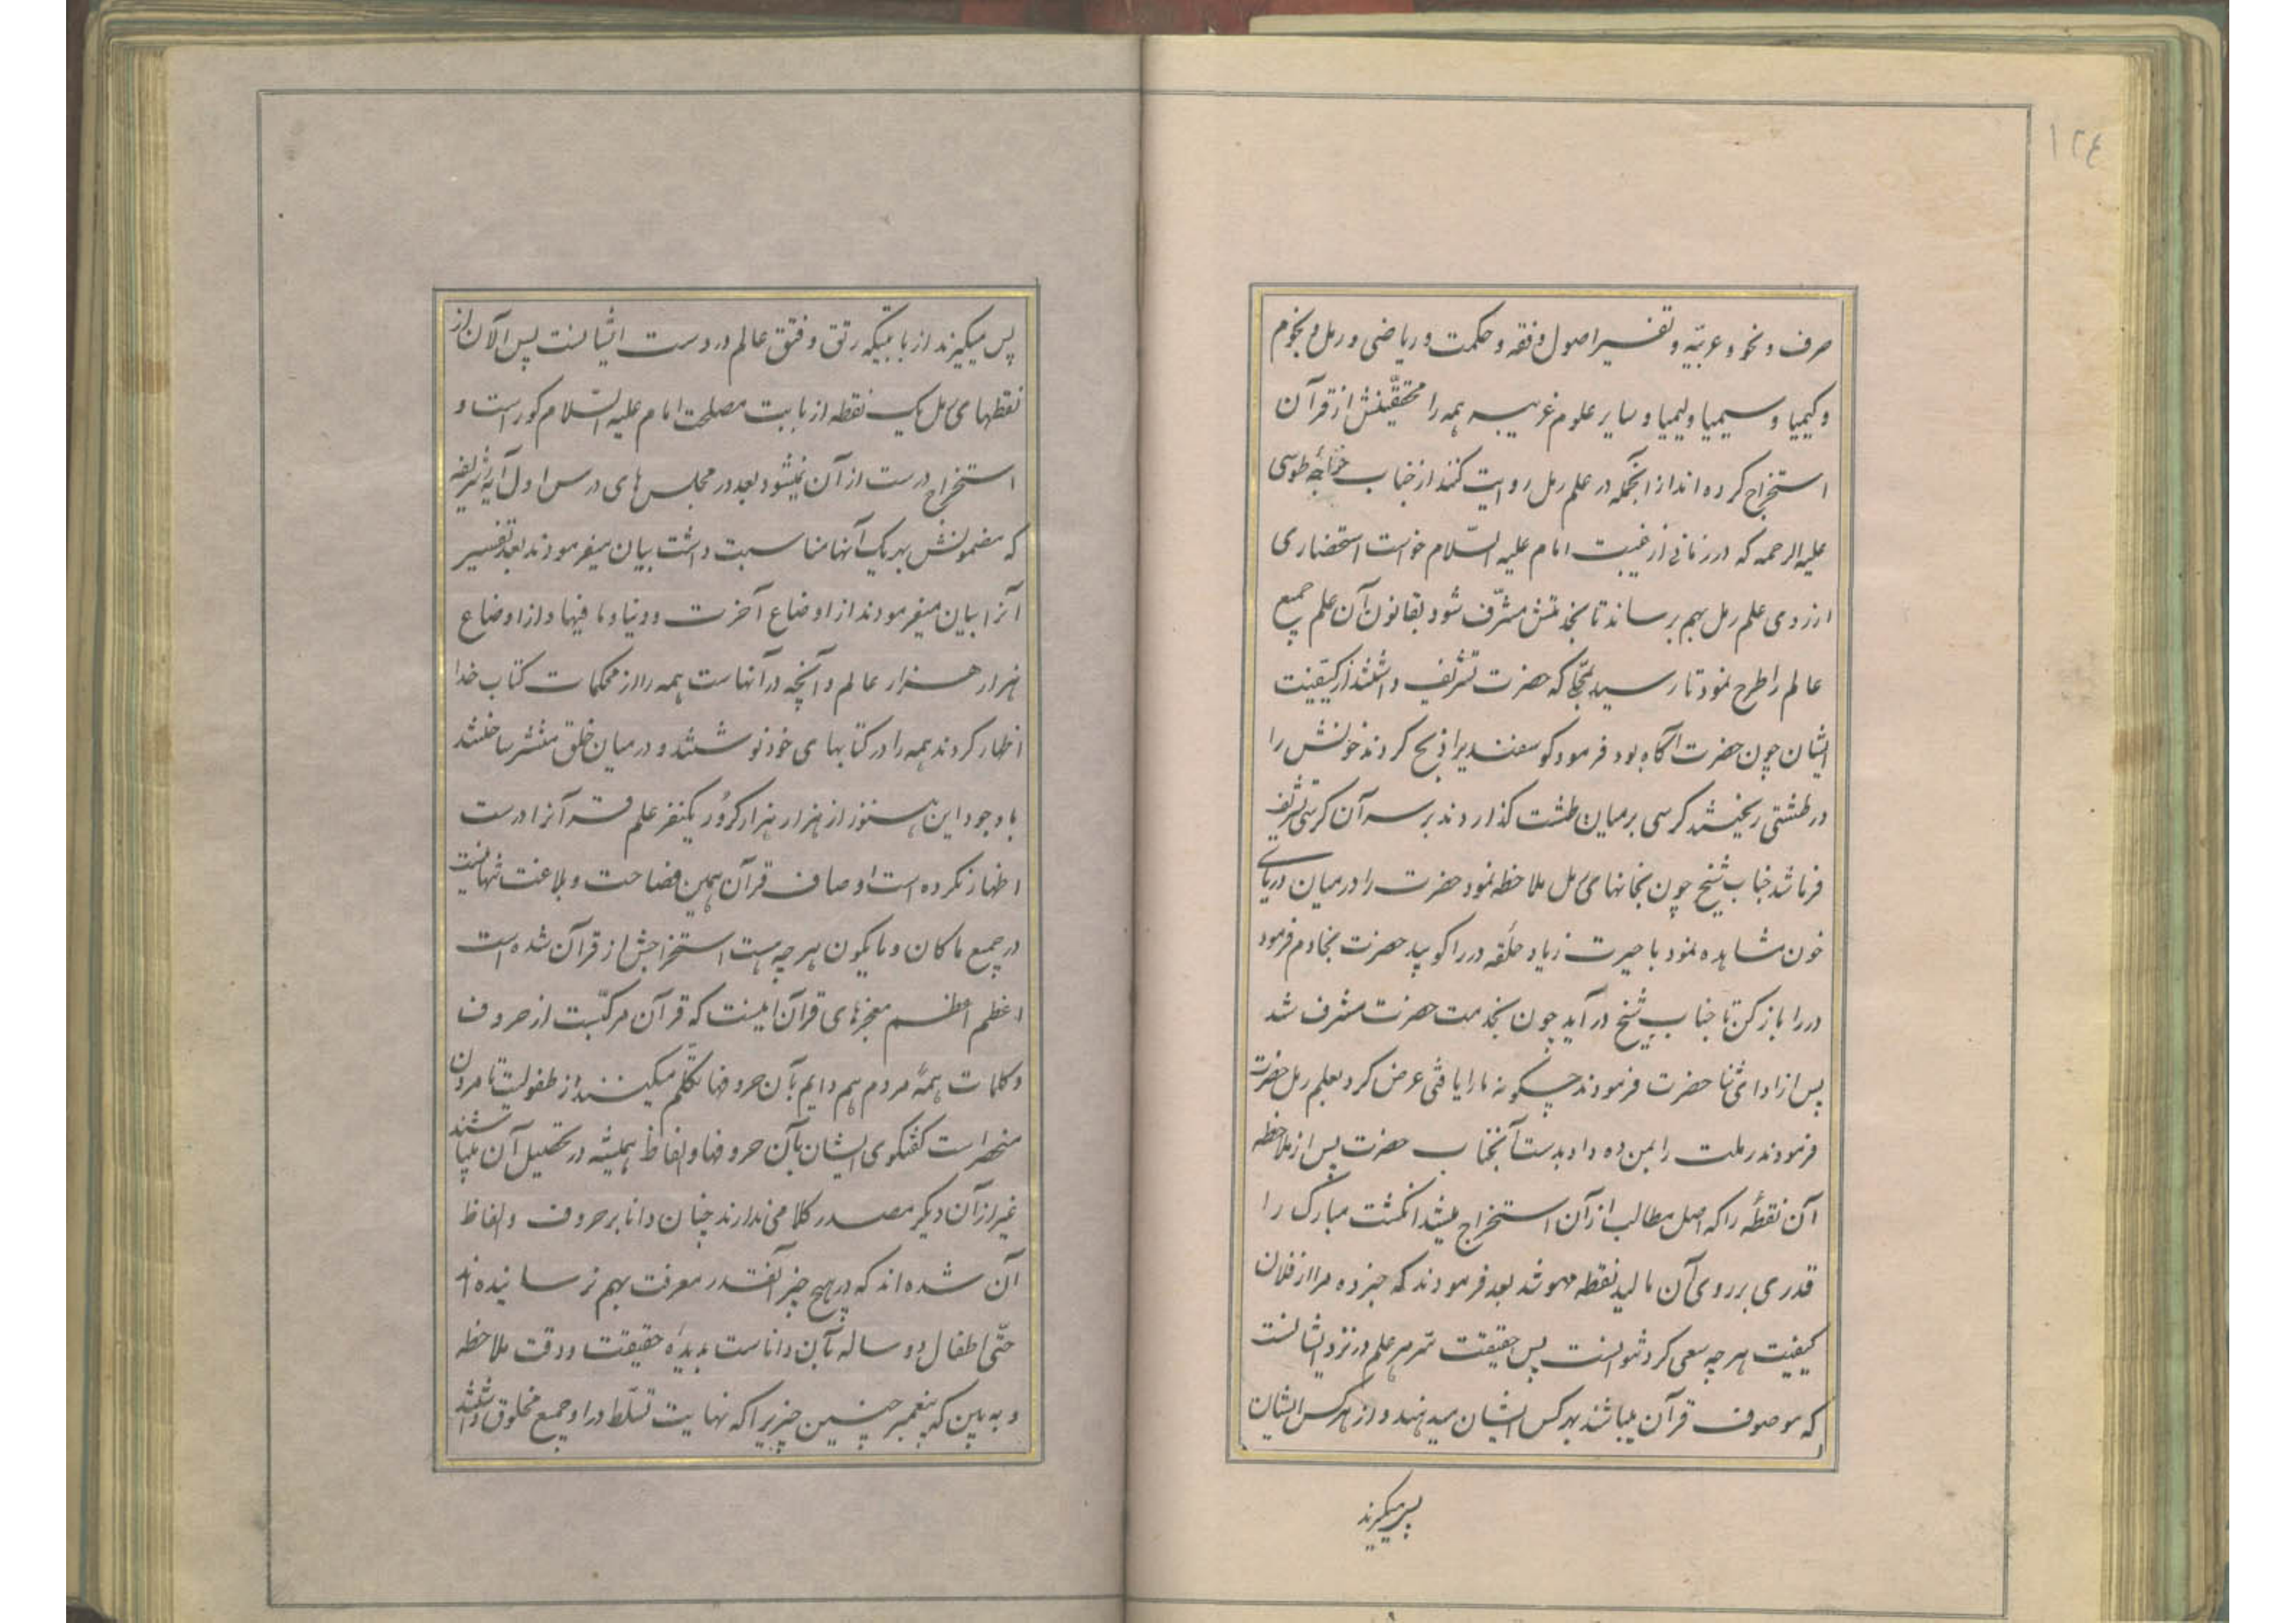 ۱۲٤
صرف و نحو و عربیّه و تفسیر اصول و فقه و حکمت و ریاضی و رمل و نجوم
و کیمیا و سیمیا و لیمیا و سایر علوم غریبه همه را محققینش از قرآن
استخراج کرده‌اند از انجمله در علم رمل روایت کنند از جناب خواجه طوسی
علیه الرحمه که در زمانی از غیبت امام علیه السّلام خواست استحضاری
از روی علم رمل بهم رساند تا بخدمتش مشرّف شود بقانون آن علم جمیع
عالم را طرح نمود تا رسید بجائیکه حضرت تشریف داشتند از کیفیت
ایشان چون حضرت آگاه بود فرمود گوسفندیرا ذبح کردند خونش را
در طشتی ریختند کرسی بر میان طشت گذاردند بر سر آن کرسی تشریف
فرما شد جناب شیخ چون بخانهای رمل ملاحظه نمود حضرت را در میان دریای
خون مشاهده نمود با حیرت زیاد حلقه در را کوبید حضرت بخادم فرمود
در را باز کن تا جناب شیخ در آید چون بخدمت حضرت مشرف شد
پس از ادای ثنا حضرت فرمودند چگونه ما را یافتی عرض کرد بعلم رمل حضرت
فرمودند رملت را بمن ده داد بدست آنجناب حضرت پس از ملاحظه
آن نقطهٔ را که اصل مطالب از آن استخراج میشد انگشت مبارک را
قدری بر روی آن مالید نقطه محو شد بعد فرمودند که خبر ده مرا از فلان
کیفیت هر چه سعی کرد نتوانست پس حقیقت سرّ هر علم در نزد ایشانست
که موصوف قرآن میباشند بهر کس ایشان میدهند و از هر کس ایشان
پس میگیرند
پس میگیرند از بابتیکه رتق و فتق عالم در دست ایشانست پس الآن از
نقطهای رمل یک نقطه از بابت مصلحت امام علیه السّلام کور است و
استخراج درست از آن نمیشود بعد در مجلس های درس اول آیهٔ شریفه
که مضمونش بهر یک آنها مناسبت داشت بیان میفرمودند بعد تفسیر
آنرا بیان میفرمودند از اوضاع آخرت و دنیا و ما فیها و از اوضاع
هزار هزار عالم و آنچه در آنهاست همه را از محکمات کتاب خدا
اظهار کردند همه را در کتابهای خود نوشتند و در میان خلق منتشر ساختند
با وجود این هنوز از هزار هزار کرُور یکنفر علم قرآنرا درست
اظهار نکرده است اوصاف قرآن همین فصاحت و بلاغت تنها نیست
در جمیع ما کان و ما یکون هر چه هست استخراجش از قرآن شده است
اعظم اعظم معجزهای قرآن اینست که قرآن مرکّبست از حروف
و کلمات همهٔ مردم هم دایم بآن حروفها تکلّم میکنند از طفولیت تا مردن
منحصر است گفتگوی ایشان بآن حروفها و الفاظ همیشه در تحصیل آن میباشند
غیر از آن دیگر مصدر کلامی ندارند چنان دانا بر حروف و الفاظ
آن شده‌اند که در هیچ چیز آنقدر معرفت بهم نرسانیده‌اند
حتّی اطفال دو ساله بآن داناست بدیدهٔ حقیقت و دقت ملاحظه
و به بین که پیغمبر چنین چیزیرا که نهایت تسلّط در او جمیع مخلوق داشتند